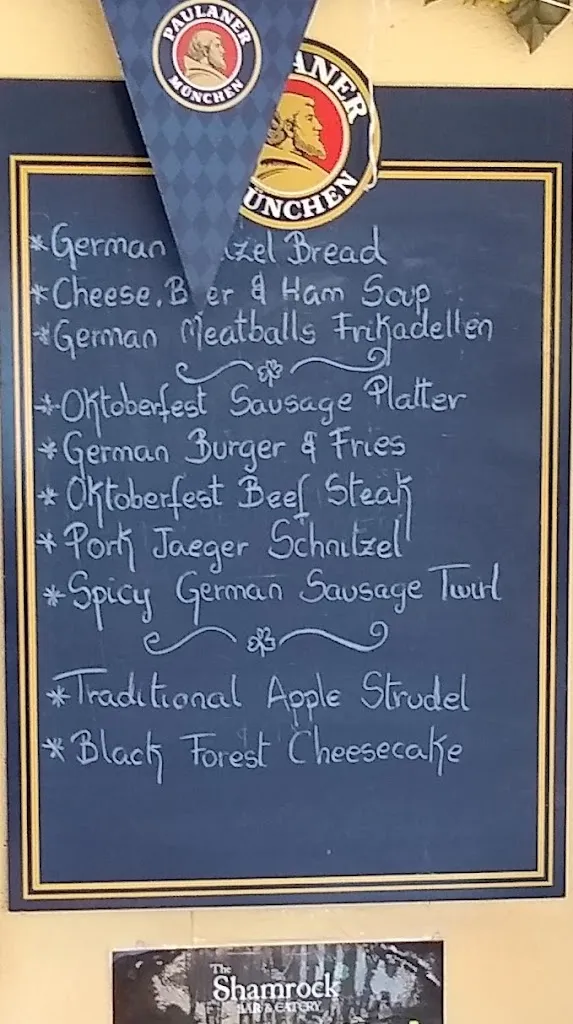 PAULANER
MÜNCHEN
ANER
ÜNCHEN
*German zel Bread
*Cheese, B er & Ham Soup
*German Meatballs Frikadellen
*Oktoberfest Sausage Platter
*German Burger & Fries
*Oktoberfest Beef Steak
*Pork Jaeger Schnitzel
*Spicy German Sausage Twirl
*Traditional Apple Strudel
*Black Forest Cheesecake
The
Shamrock
BAR & EATERY